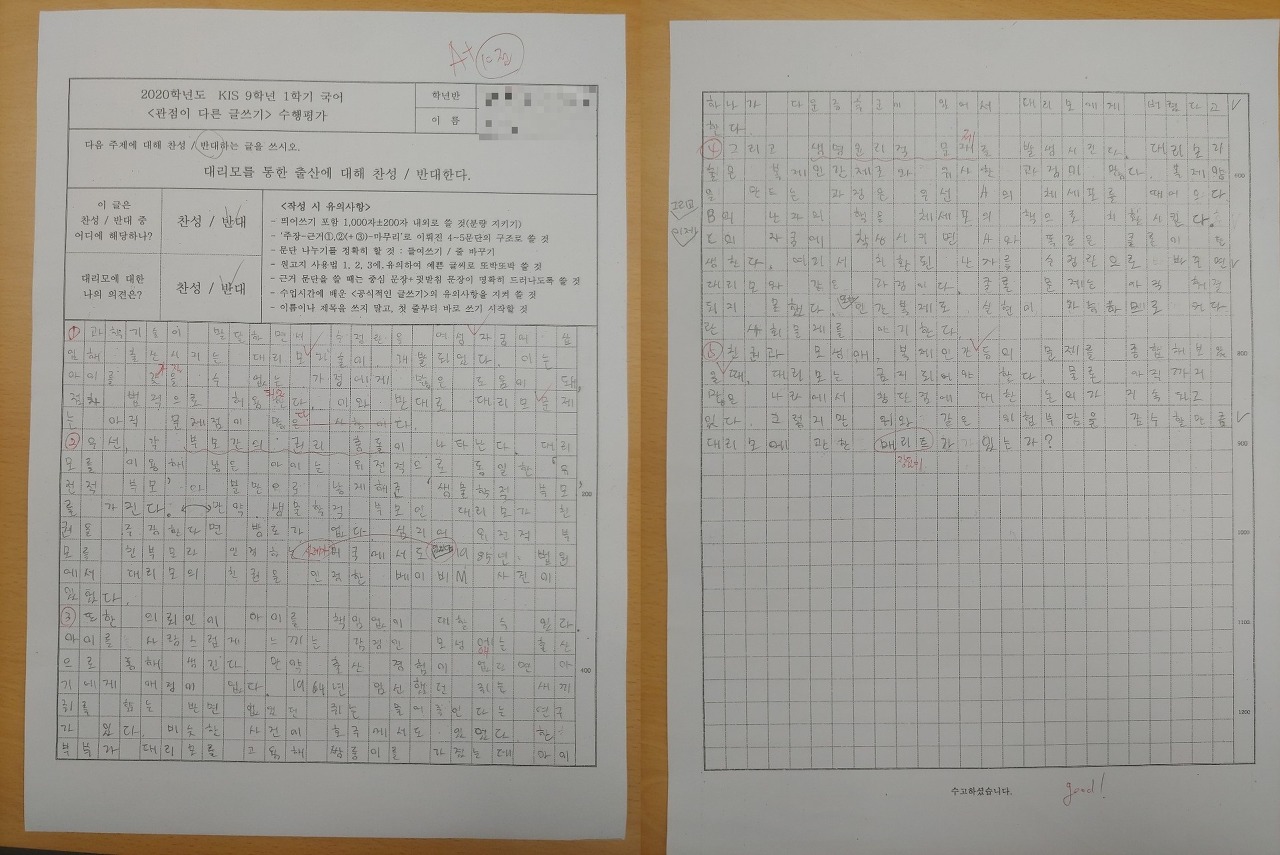 A+ 10점
2020학년도 KIS 9학년 1학기 국어
<관점이 다른 글쓰기> 수행평가
학년반
이 름
다음 주제에 대해 찬성 / 반대하는 글을 쓰시오.
대리모를 통한 출산에 대해 찬성 / 반대한다.
이 글은
찬성 / 반대 중
어디에 해당하나?
찬성 / 반대
대리모에 대한
나의 의견은?
찬성 / 반대
<작성 시 유의사항>
- 띄어쓰기 포함 1,000자±200자 내외로 쓸 것(분량 지키기)
- '주장-근거①,②(+③)-마무리'로 이뤄진 4~5문단의 구조로 쓸 것
- 문단 나누기를 정확히 할 것 : 들여쓰기 / 줄 바꾸기
- 원고지 사용법 1, 2, 3에 유의하여 예쁜 글씨로 또박또박 쓸 것
- 근거 문단을 쓸 때는 중심 문장+뒷받침 문장이 명확히 드러나도록 쓸 것
- 수업시간에 배운 <공식적인 글쓰기>의 유의사항을 지켜 쓸 것
- 이름이나 제목을 쓰지 말고, 첫 줄부터 바로 쓰기 시작할 것
① 과학기술이 발달하면서 수정란을 여성 자궁에 삽
입해 출산시키는 대리모 기술이 개발되었다. 이는
아이를 갖을 수 없는 가정에게 많은 도움이 돼
점차 법적으로 허용 이와 반대로 대리모 문제
는 아직 문제점이 많은 사항이다.
② 우선, 각 부모간의 권리 충돌이 나타난다. 대리
모를 이용해 낳은 아이는 유전적으로 동일한 '유
전적 부모' 아 별반으로 낳게해준 '생물학적 부모'
200
를 가진다. 만약 생물학적 부모인 대리모가 친
권을 주장한다면 방도가 없다. 심지어 유전적 부
모를 친부모라 인정하는 미국에서도 1985년, 법원
에서 대리모의 친권을 인정한 베이비M 사건이
있었다.
③ 또한 의뢰인이 아이를 책임없이 대할 수 있다.
아이를 사랑스럽게 느끼는 감정인 모성애는 출산
으로 통해 생긴다. 만약 출산 경험이 없다면 아
400
기에게 애정이 없다. 1964년 임신했던 쥐는 새끼
쥐를 핥는 반면 없었던 쥐는 물어죽인다는 연구
가 있다. 비슷한 사건이 호주에서도 있었다. 한
부부가 대리모를 고용해 쌍둥이를 가졌는데 아이
하나가 다운증후군이 있어서 대리모에게 버렸다고
한다.
④ 그리고 생명윤리적 문제를 발생시킨다. 대리모라
함은 복제인간체로와 유사한 과정이 있다. 복제양
600
을 만드는 과정은 우선 A의 체세포를 떼어으다
그리고
B의 난자의 핵을 체세포의 핵으로 치환시킨다.
이제
C의 자궁에 착상시키면 A와 똑같은 클론이 탄
생한다. 여기서 치환된 난자를 수정란으로 바꾸면
대리모와 같은 과정이다. 클론 문제는 아직 해결
되지 못했다. 인간복제도 실현이 가능하므로 커다
란 사회문제를 야기한다.
⑤ 친권과 모성애, 복제인간 등의 문제를 종합해보았
800
을때, 대리모는 금지되어야 한다. 물론 아직까지
많은 나라에서 장단점에 대한 논의가 지속되고
있다. 그렇지만 위와 같은 위험부담을 감수할만큼
대리모에 관한 메리트라가 있는가?
강점이
900
1000
1200
수고하셨습니다.
good!